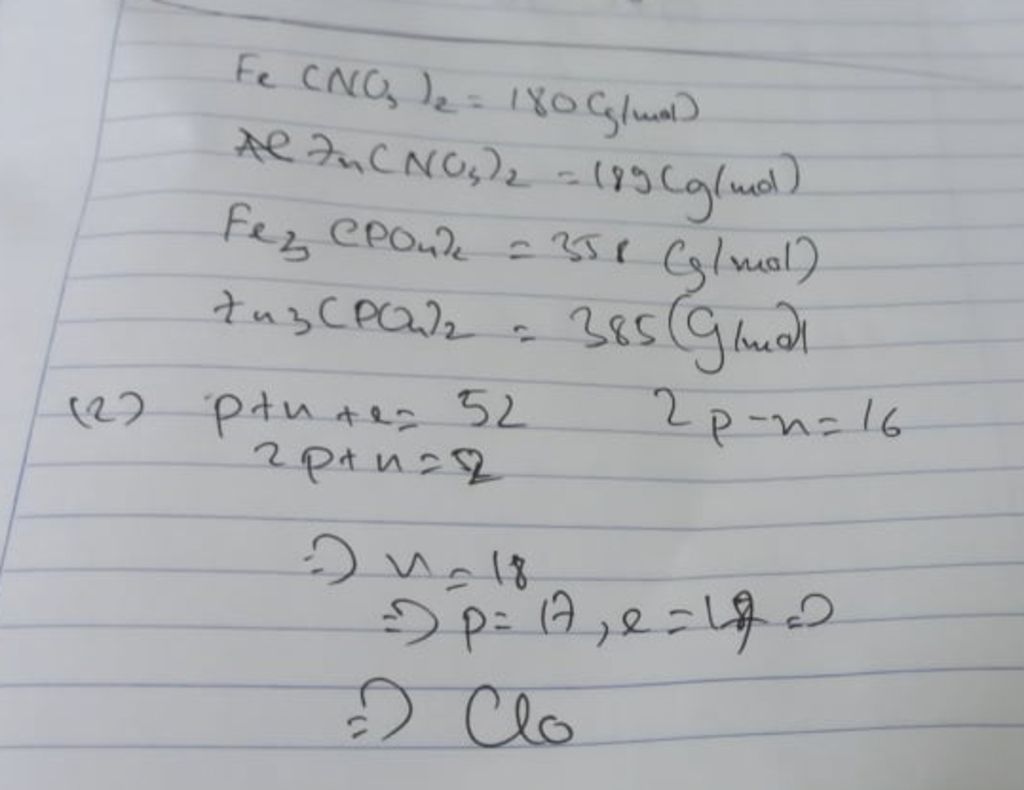 Fe (NO3)2 = 180 (g/mol)
Zn(NO3)2 = 189 (g/mol)
Fe3 (PO4)2 = 358 (g/mol)
Zn3(PO4)2 = 385 (g/mol
(2) p+n+e= 52 2p-n=16
2p+n=52
=> n=18
=> p=17, e=17 =>
=> Clo